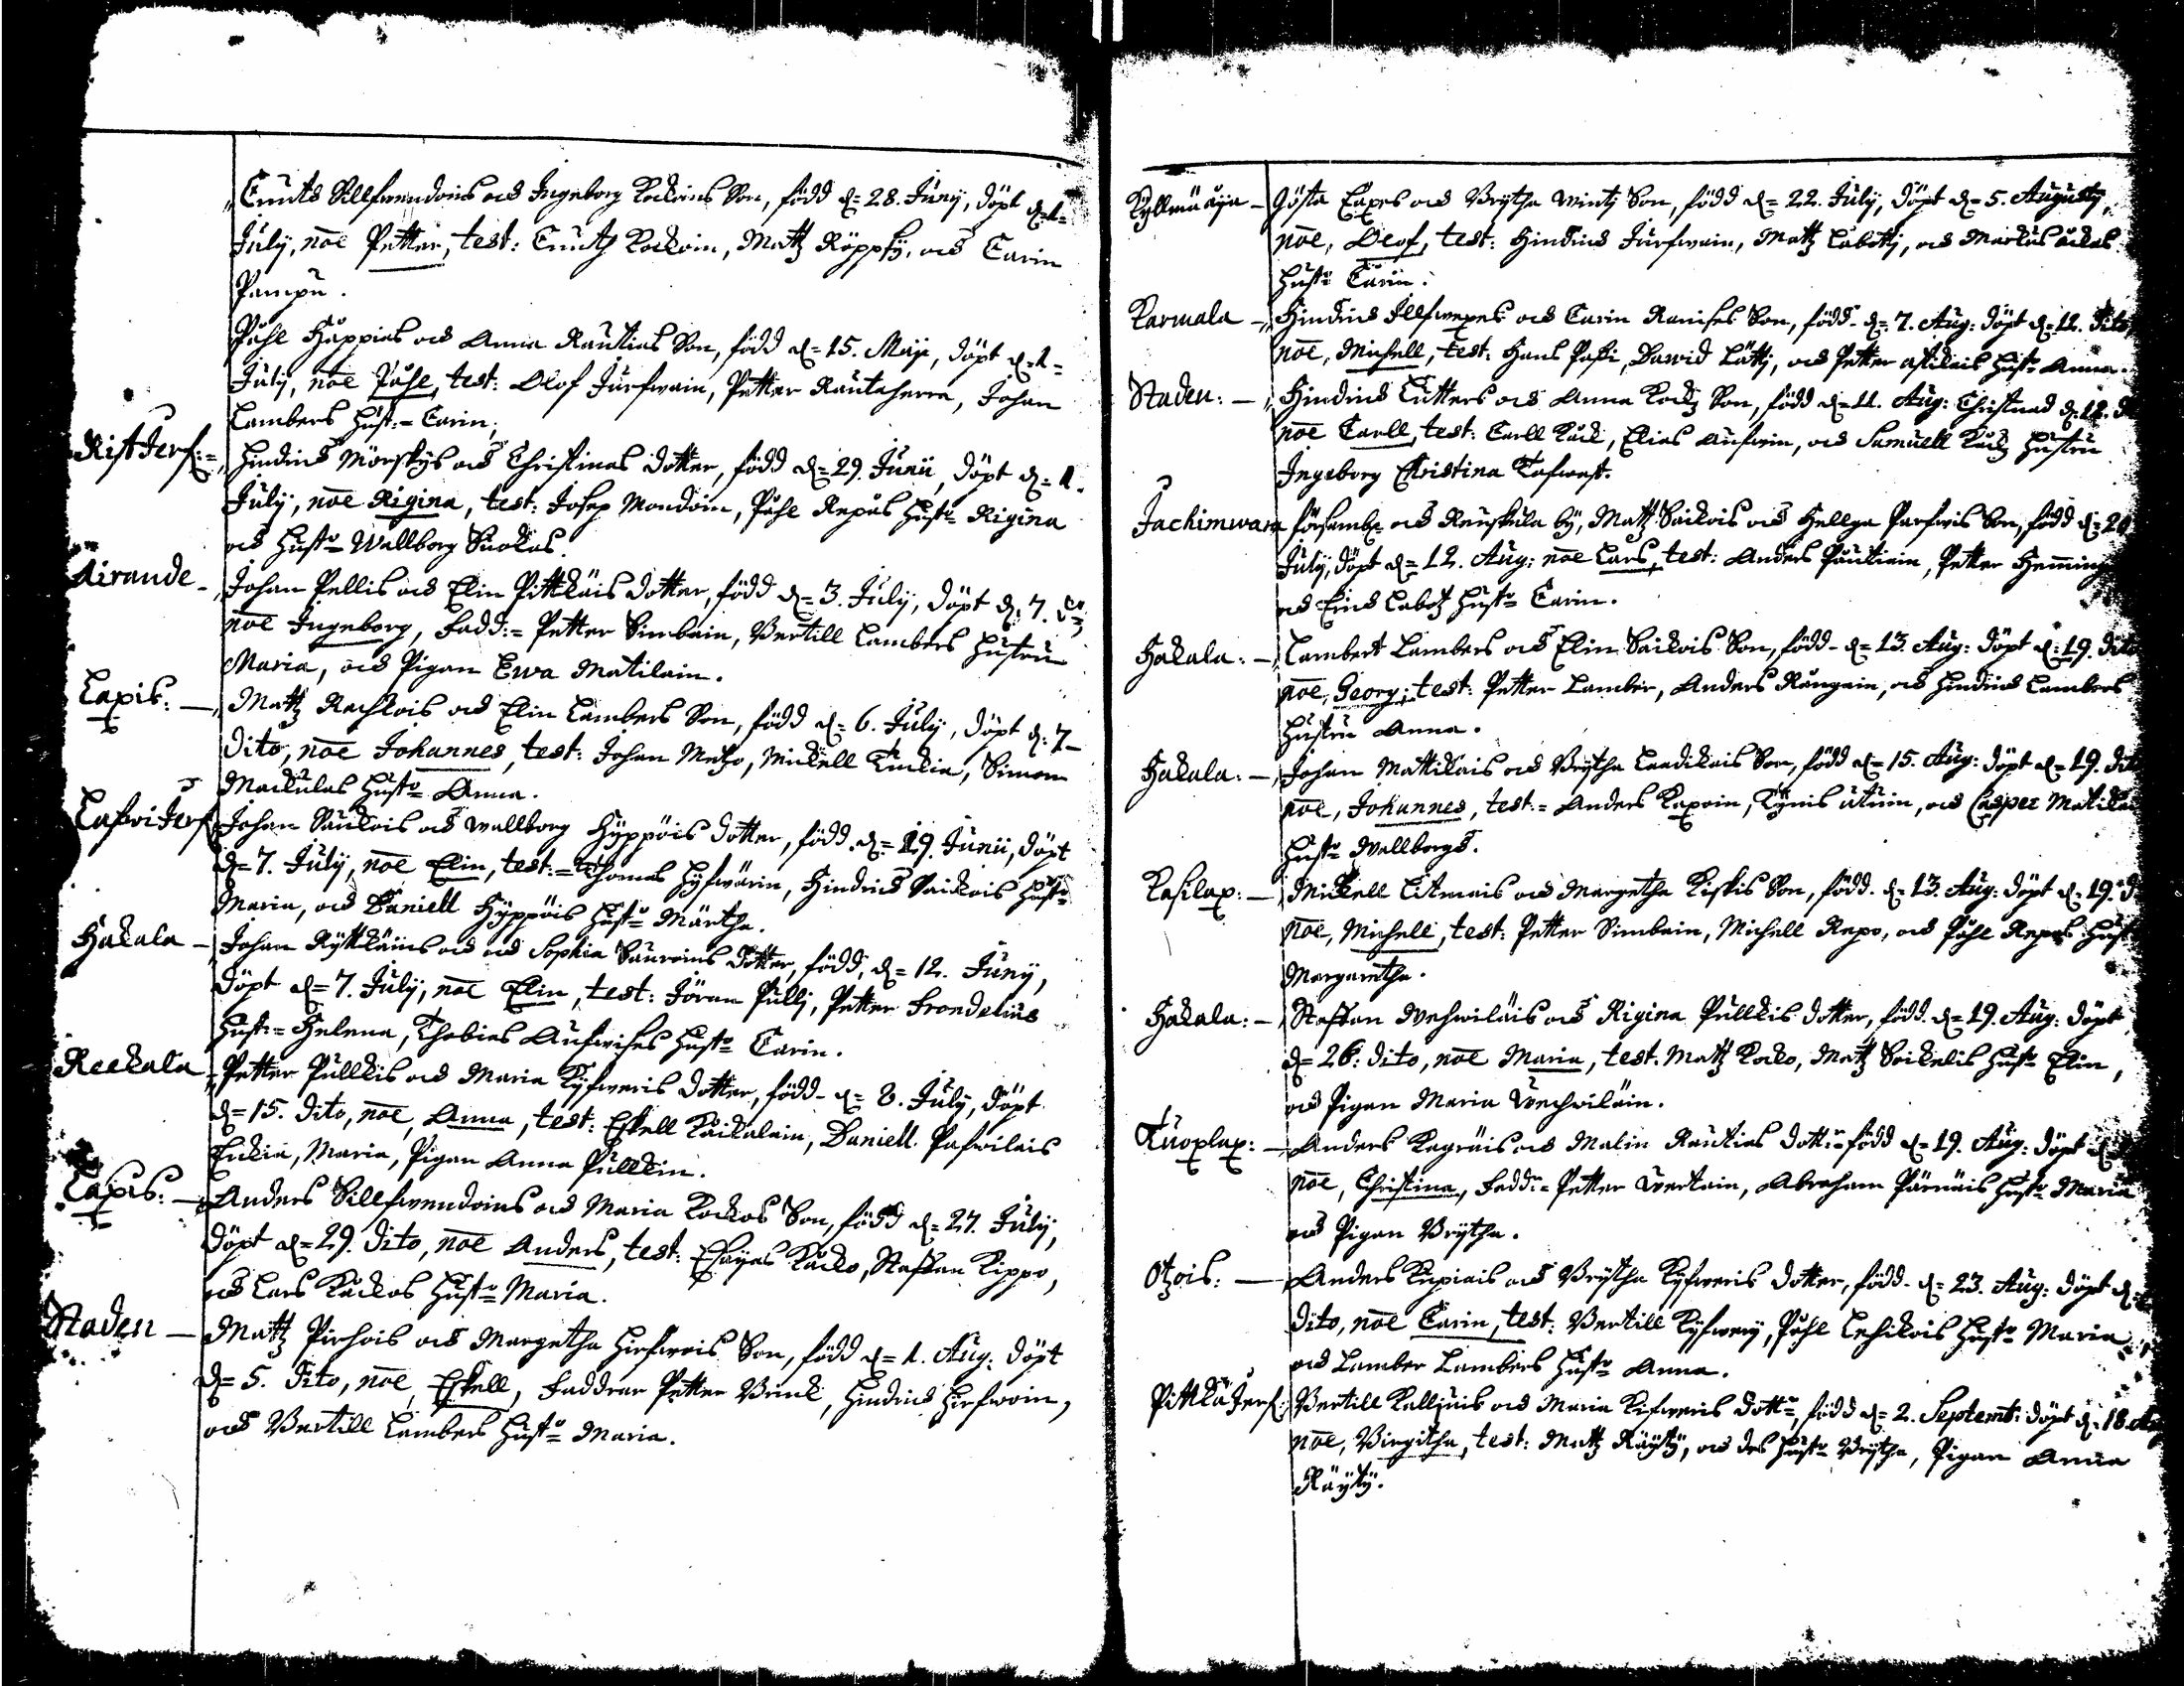 Cnuts Sillfwendoins och Ingeborg Kockoins Son, född d= 28. Juny, döpt d=1=
July, noe Petter, test: Cnuth Kockoin, Mattz Röppsÿ, och Carin
Pampu.
Påhl Häppias och Anna Rautias Son, född d= 15. Maji, döpt d=1=
July, noe Påhl, test: Olof Jurfwain, Petter Rautaherra, Johan
Lambers Hust:= Carin,
RistJerf:= Hindrics Mörskÿs och Christinas dotter, född d= 29. Junii, döpt d= 1.
July, noe Rigina, test: Josep Mondoin, Påhl Repos Hust= Rigina
och Hust= Wallborg Suckas.
Airande - Johan Pellis och Elin Pittkäis dotter, född d= 3. July, döpt d: 7.
noe Ingeborg, Fadd:= Petter Simbain, Bertill Lambers Hustru
Maria, och Pigan Ewa Matilain.
Laxis: - Mattz Rachkois och Elin Lambers Son, född d= 6. July, döpt d: 7-
dito, noe Johannes, test: Johan Metzo, Mickell Luckia, Simon
Mackulas Hust= Anna.
LaswiJerf Johan Saukois och Wallborg Hÿppöis dotter, född d= 29. Junii, döpt
d= 7. July, noe Elin, test:= Thomas Hyfwärin, Hindrics Saickois Hust=
Maria, och Daniell Hÿppöis Hust= Märtha.
Hakala - Johan Rÿttkäins och och Sophia Sauroins dotter, född, d= 12. Junÿ,
döpt d= 7. July, noe Elin, test: Jöran Pulli, Petter Frondelius
Hust:= Helena, Thobias Aufwises Hust= Carin.
Reekala - Petter Pullkis och Maria Kyfweris dotter, född d= 8. July, döpt
d= 15. dito, noe, Anna, test: Eskell Kaikalain, Daniell Paswilais
Enkia, Maria, Pigan Anna Pullkin.
Laxis: - Anders Sillfwendoins och Maria Kockos Son, född d= 27. July,
döpt d= 29. dito, noe Anders, test: Esaÿas Kocko, Staffan Kippo,
och Lars Kockos Hust= Maria.
Staden - Mattz Pirhois och Margetha Hirfwois Son, född d= 1. Aug: döpt
d= 5. dito, noe, Eskell, Faddrar Petter Brunk, Hindrics Hirfwoin,
och Bertill Lambers Hust= Maria.
Kyllmäåja - Gösta Laxes och Brÿtha Winti Son, född d= 22. July, döpt d= 5. Augusty,
noe, Olof, test: Hindrics Jurfwain, Mattz Labotti, och Markus
Hust= Carin.
Karmala - Hindrics Illfwexes och Carin Ranises Son, född d= 7. Aug: döpt d= 12. dito
noe, Michell, test: Hans Pasi, Dawid Lätti, och Petter Hust= Anna.
Staden: - Hindrics Lutters och Anna Son, född d= 11. Aug: Christnad d: 12.
noe Carll, test: Carll, Elias Aufwin, och Samuell Hustru
Ingeborg Christina Tafwast.
Jachimwara församb= och Reuskula bÿ, Mattz Saickois och Hellga Parfwis Son, född d= 20
July, döpt d= 12. Aug: noe Lars, test: Anders Pautiain, Petter Heming
och Labotz Hust= Carin.
Hakala: - Lambert Lambers och Elin Saikois Son, född d= 13. Aug: döpt d: 19. dito
noe, Georg, test: Petter Lamber, Anders Rungain, och Hindrics Lambers
Hustru Anna.
Hakala: - Johan Mattikais och Brÿtha Laudikais Son, född d= 15. Aug: döpt d= 19. dit
noe, Johannes, test:= Anders Kaxoin, och Casper
Hust= Wallborg.
Kasilax: - Mickell Litmais och Margetha Kiskis Son, född d= 13. Aug: döpt d: 19.
noe, Michell, test: Petter Simbain, Michell Repo, och Påhl Repos Hust
Margaretha.
Hakala: - Staffan Wehwiläis och Rigina Pullkis dotter, född d= 19. Aug: döpt
d= 26: dito, noe Maria, test. Mattz Kocko, Mattz Hust= Elin,
och Pigan Maria Wechwiläin.
Kuoxlax: - Anders Kagräis och Malin Rautias dott:= född d= 19. Aug: döpt d
noe, Christina, Fadd:= Petter Wertain, Abraham Pärnäis Hust= Maria
och Pigan Brÿtha.
Otzois: - Anders Kupiais och Brÿtha Kyfweris dotter, född d= 23. Aug: döpt d=
dito, noe Carin, test: Bertill Kyfwery, Påhl Lesikois Hust= Maria
och Lamber Lambers Hust= Anna.
PittkäJerf: Bertill Kalljuis och Maria Kyfweris dott=, född d= 2. Septemb: döpt d: 18.
noe, Birgitha, test: Mattz Räÿtÿ, och des Hust= Brÿtha, Pigan Anna
Räÿtÿ.